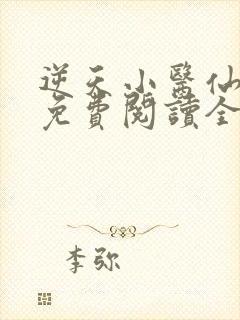 逆天小醫仙
免費閱讀全
李弥